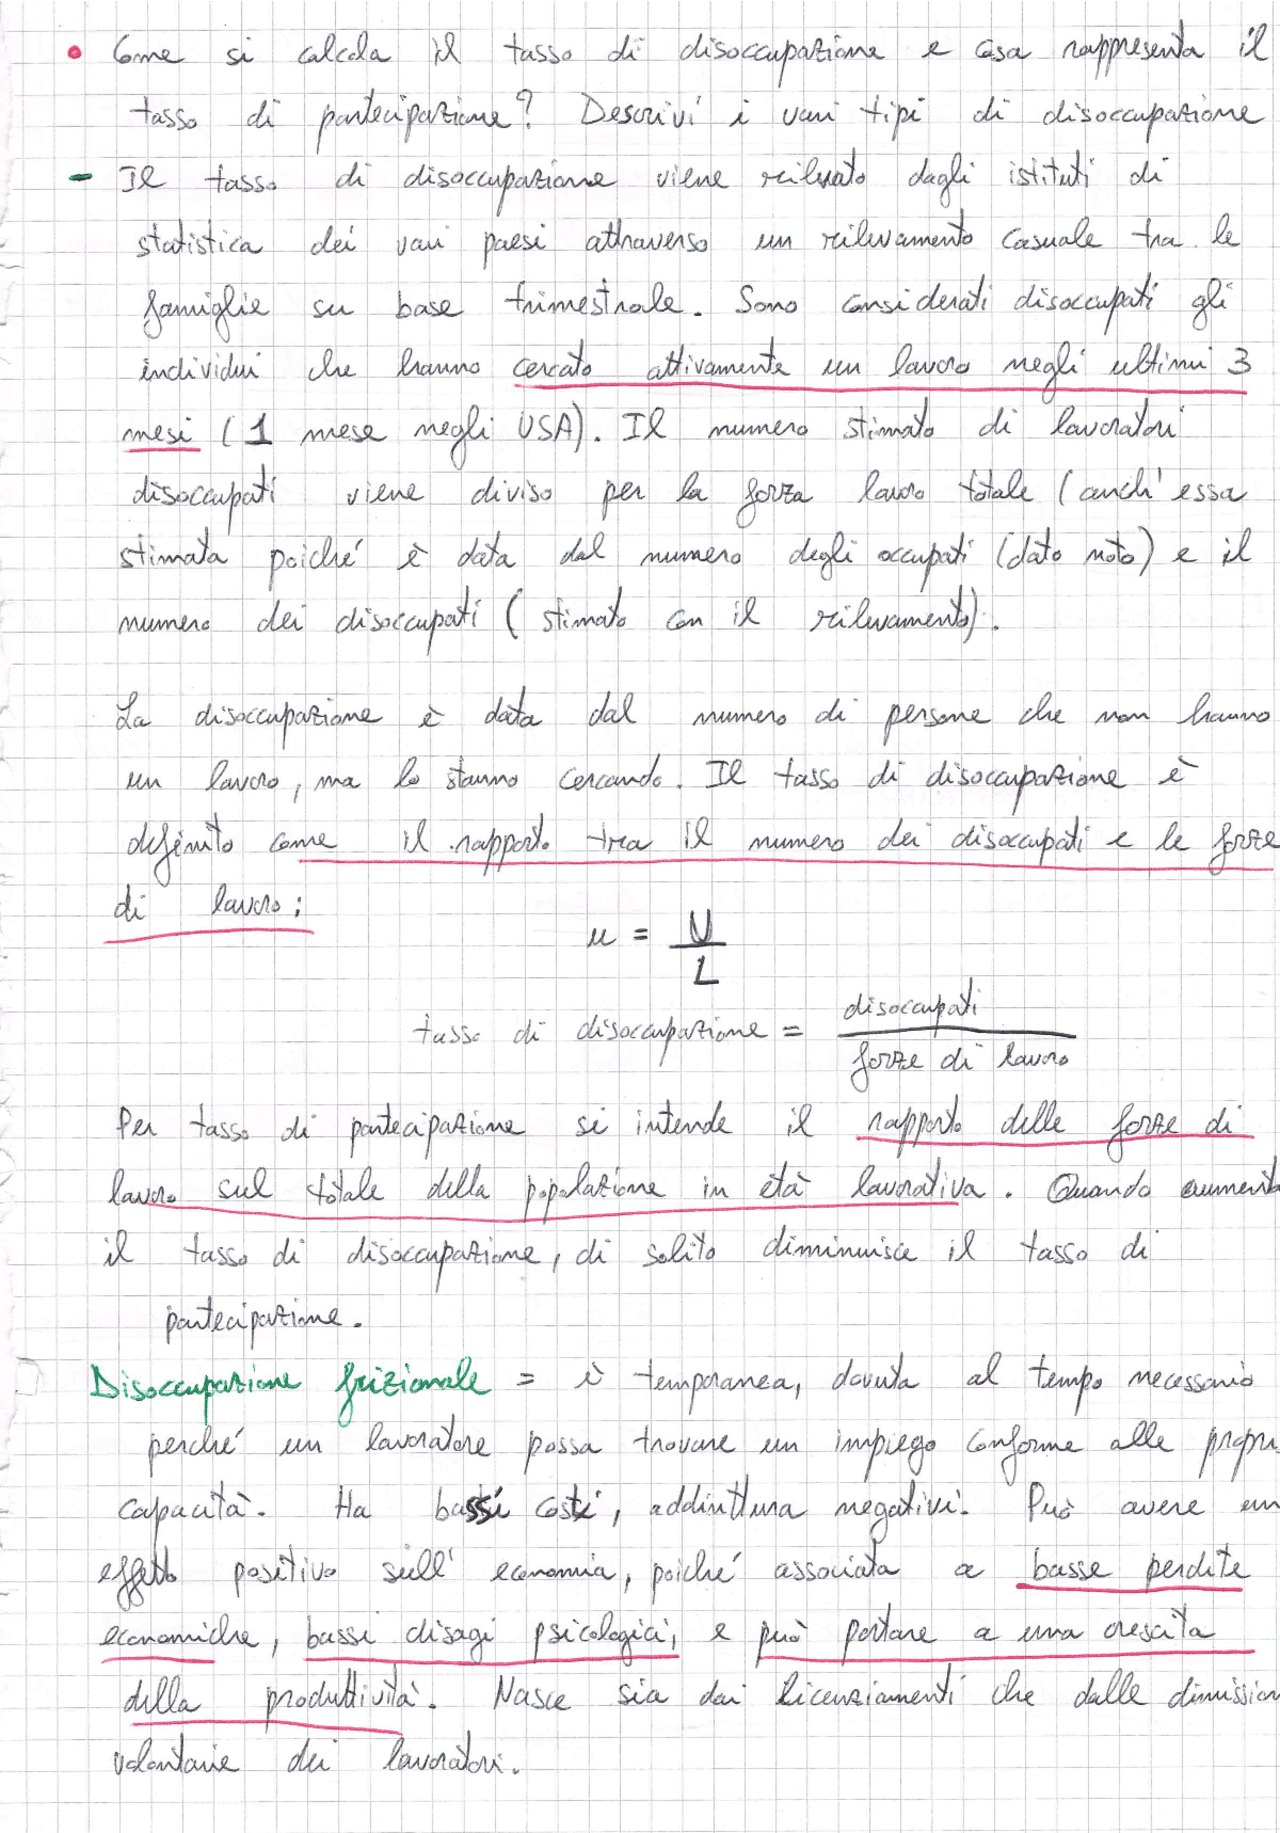 • Come si calcola il tasso di disoccupazione e cosa rappresenta il
tasso di partecipazione? Descrivi i vari tipi di disoccupazione
- Il tasso di disoccupazione viene rilevato dagli istituti di
statistica dei vari paesi attraverso un rilevamento casuale tra le
famiglie su base trimestrale. Sono considerati disoccupati gli
individui che hanno cercato attivamente un lavoro negli ultimi 3
mesi (1 mese negli USA). Il numero stimato di lavoratori
disoccupati viene diviso per la forza lavoro totale (anch'essa
stimata poiché è data dal numero degli occupati (dato noto) e il
numero dei disoccupati (stimato con il rilevamento).
La disoccupazione è data dal numero di persone che non hanno
un lavoro, ma lo stanno cercando. Il tasso di disoccupazione è
definito come il rapporto tra il numero dei disoccupati e le forze
di lavoro:
u = U / L
tasso di disoccupazione = disoccupati / forze di lavoro
Per tasso di partecipazione si intende il rapporto delle forze di
lavoro sul totale della popolazione in età lavorativa. Quando aumenta
il tasso di disoccupazione, di solito diminuisce il tasso di
partecipazione.
Disoccupazione frizionale = è temporanea, dovuta al tempo necessario
perché un lavoratore possa trovare un impiego conforme alle propri
capacità. Ha bassi costi, addirittura negativi. Può avere un
effetto positivo sull'economia, poiché associata a basse perdite
economiche, bassi disagi psicologici, e può portare a una crescita
della produttività. Nasce sia dai licenziamenti che dalle dimission
volontarie dei lavoratori.